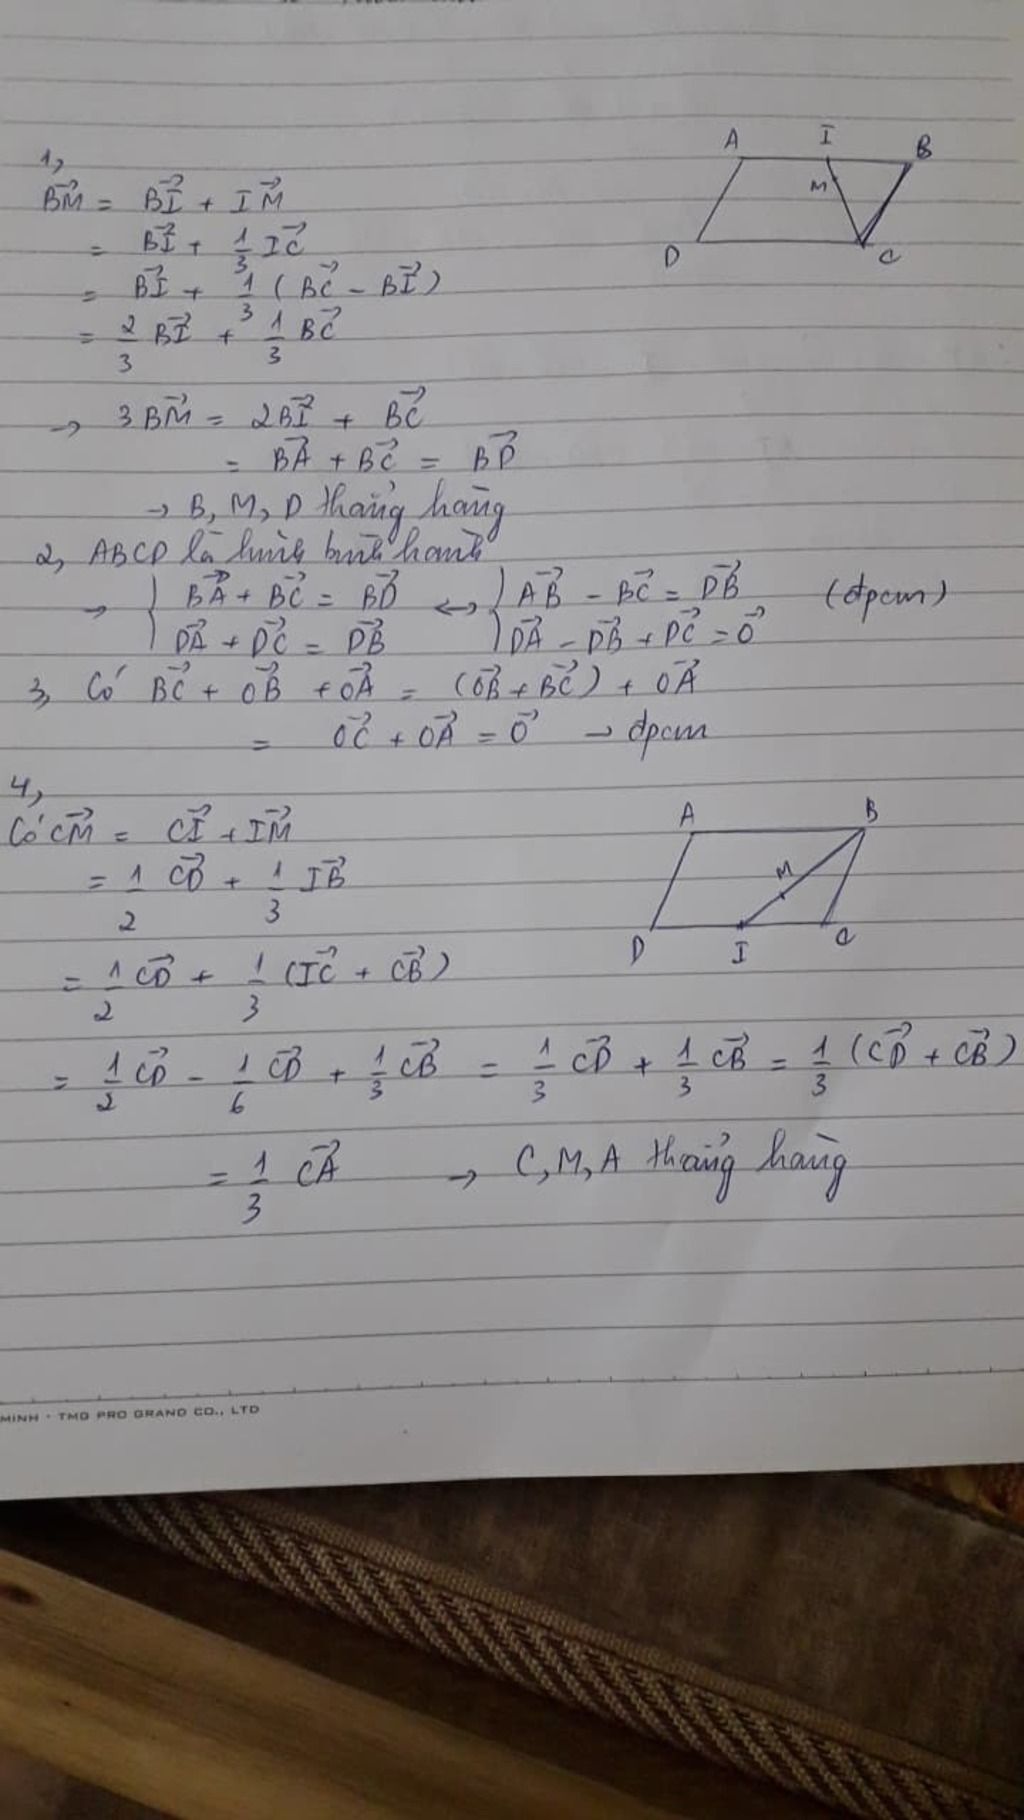 1,
A I B
M
D C
BM⃗ = BI⃗ + IM⃗
= BI⃗ + 1/3 IC⃗
= BI⃗ + 1/3 (BC⃗ - BI⃗)
= 2/3 BI⃗ + 1/3 BC⃗
→ 3BM⃗ = 2BI⃗ + BC⃗
= BA⃗ + BC⃗ = BD⃗
→ B, M, D thẳng hàng
2, ABCD là hình bình hành
→ { BA⃗ + BC⃗ = BD⃗ ↔ { AB⃗ - BC⃗ = DB⃗ (đpcm)
{ DA⃗ + DC⃗ = DB⃗ { DA⃗ - DB⃗ + DC⃗ = O⃗
3, Có BC⃗ + OB⃗ + OA⃗ = (OB⃗ + BC⃗) + OA⃗
= OC⃗ + OA⃗ = O⃗ → đpcm
4,
A B
M
D I C
Có CM⃗ = CI⃗ + IM⃗
= 1/2 CD⃗ + 1/3 IB⃗
= 1/2 CD⃗ + 1/3 (IC⃗ + CB⃗)
= 1/2 CD⃗ - 1/6 CD⃗ + 1/3 CB⃗ = 1/3 CD⃗ + 1/3 CB⃗ = 1/3 (CD⃗ + CB⃗)
= 1/3 CA⃗ → C, M, A thẳng hàng
MINH · TMG PRO GRAND CO., LTD